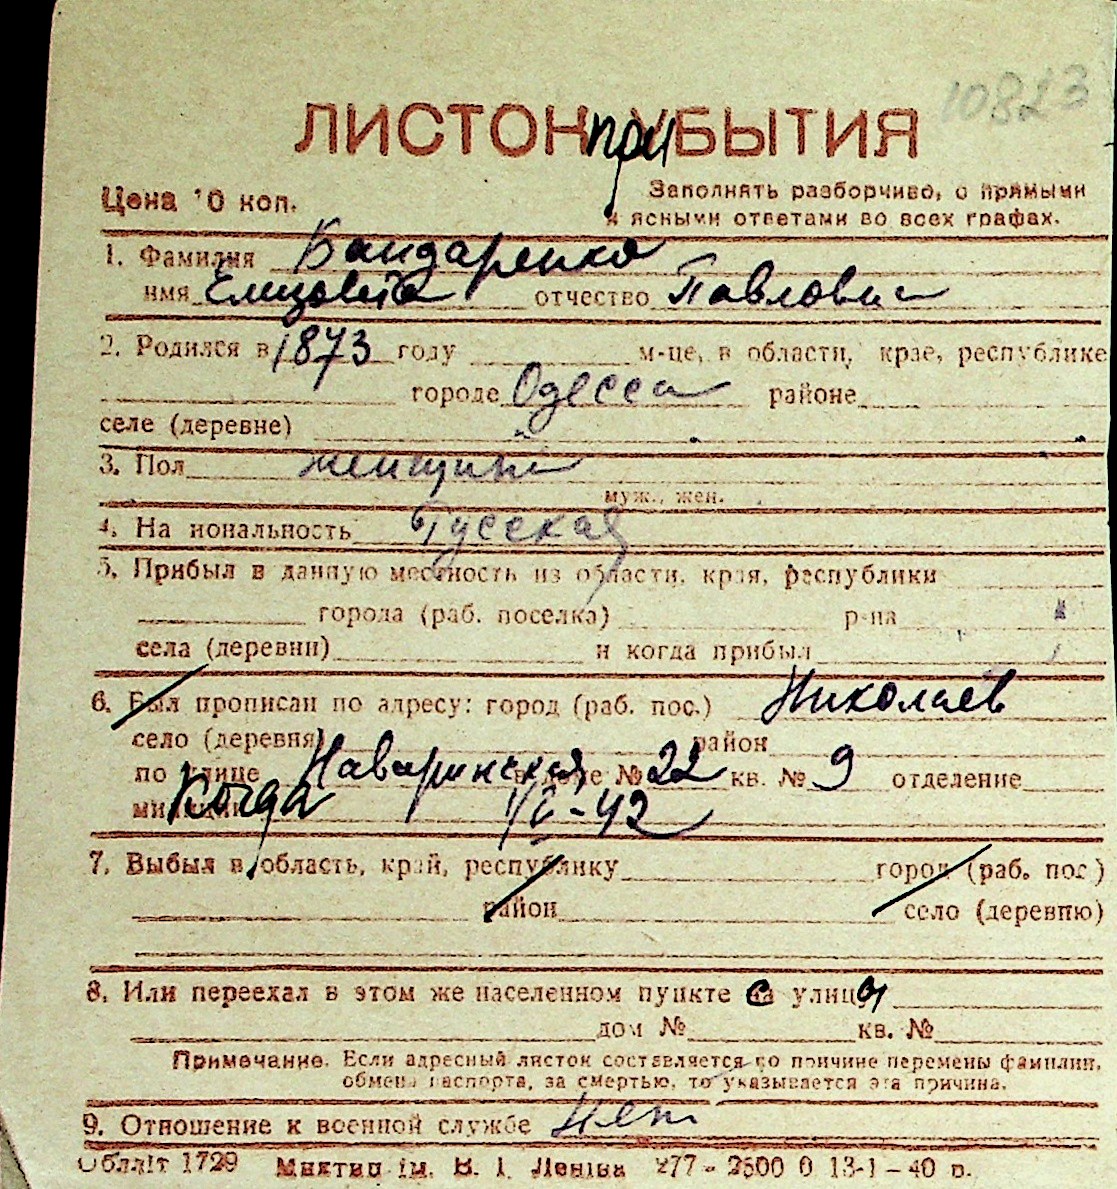 10823
ЛИСТОК при УБЫТИЯ
Цена 10 коп.
Заполнять разборчиво, с прямыми
и ясными ответами во всех графах.
1. Фамилия Бандаренко
имя Елизовета отчество Павловна
2. Родился в 1873 году м-це, в области, крае, республике
городе Одесса районе
селе (деревне)
3. Пол женщина
муж., жен.
4. Национальность Русская
5. Прибыл в данную местность из области, края, республики
города (раб. поселка) р-на
села (деревни) и когда прибыл
6. Был прописан по адресу: город (раб. пос.) Николаев
село (деревня) район
по улице Наваринская в доме № 22 кв. № 9 отделение
милиции Когда 1/V-42
7. Выбыл в область, край, республику город (раб. пос)
район село (деревню)
8. Или переехал в этом же населенном пункте с улицы
дом № кв. №
Примечание. Если адресный листок составляется по причине перемены фамилии,
обмена паспорта, за смертью, то указывается эта причина.
9. Отношение к военной службе Нет
Обліт 1729 ім. В. І. Леніна 277 - 2500 0 13-1-40 р.